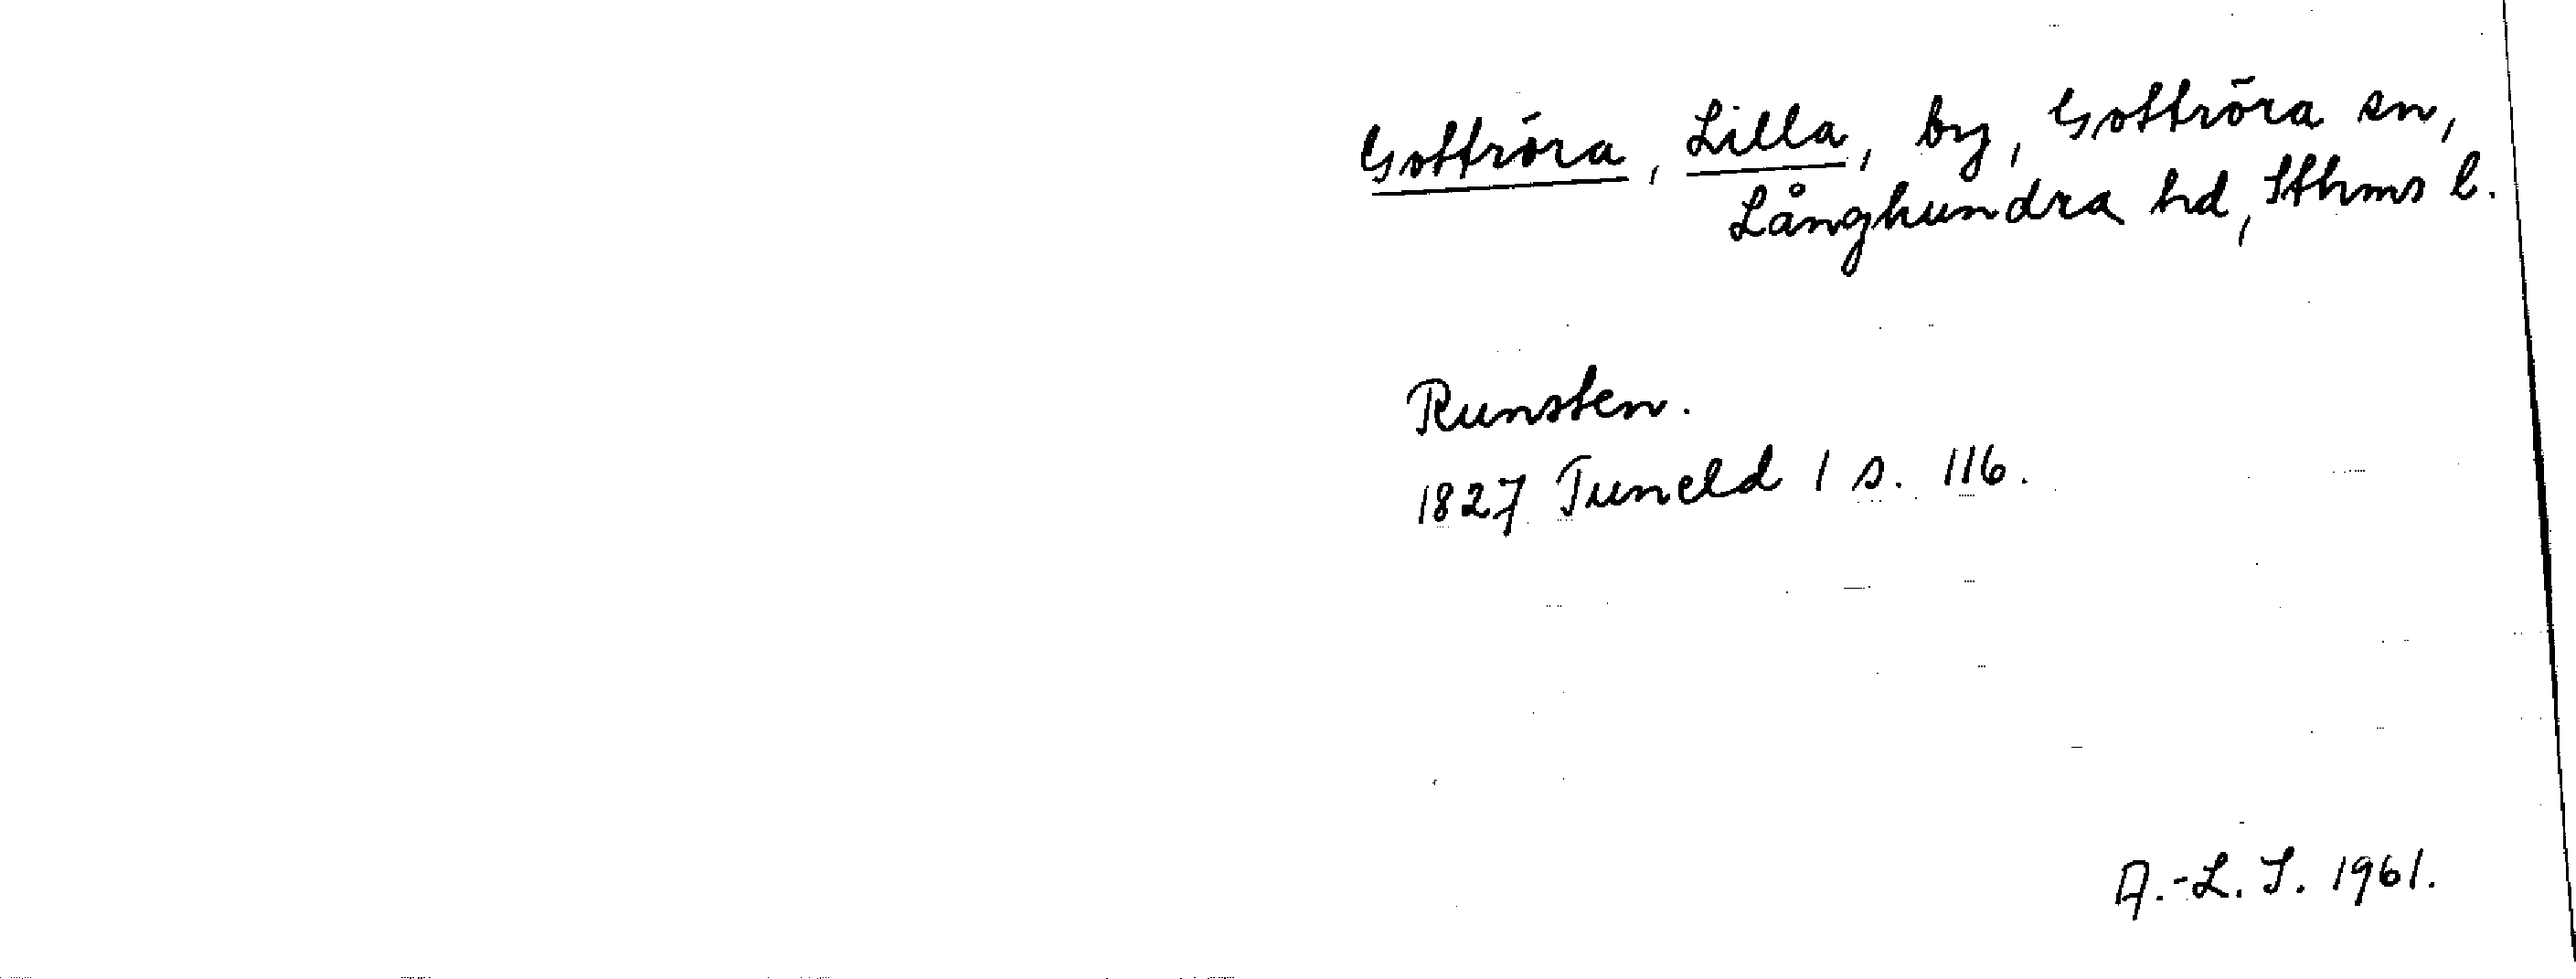 Gottröra, Lilla, by, Gottröra sn,
Långhundra hd, Sthms l.
Runsten.
1827 Tuneld 1 s. 116.
A.-L. S. 1961.